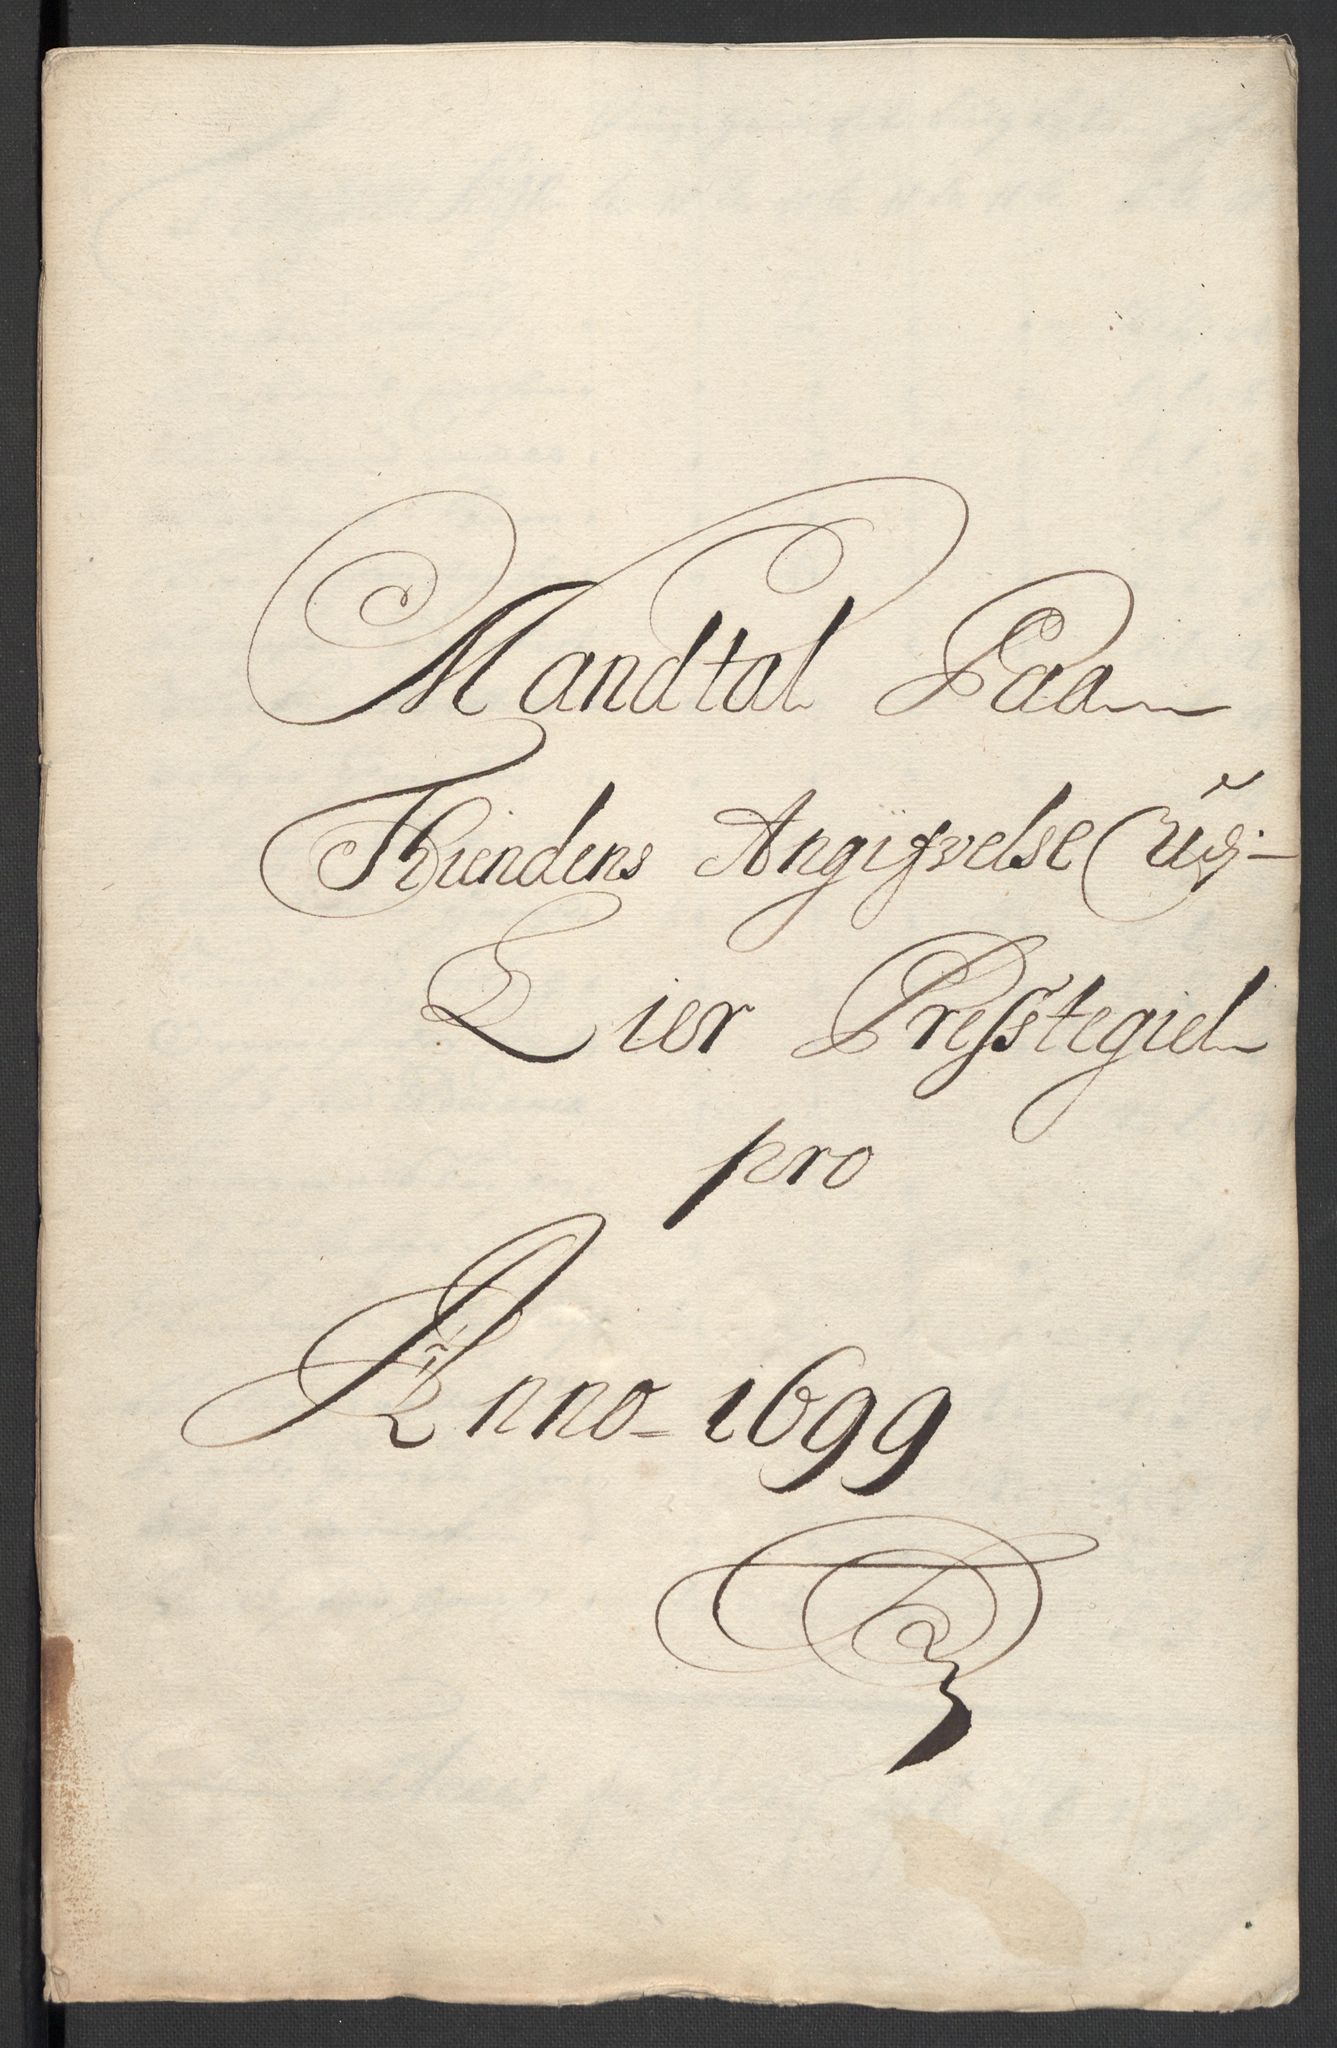 Mandtal Paa
Thiendens Angifvelse Udj
Lier Præsstegiel
pro
Anno 1699